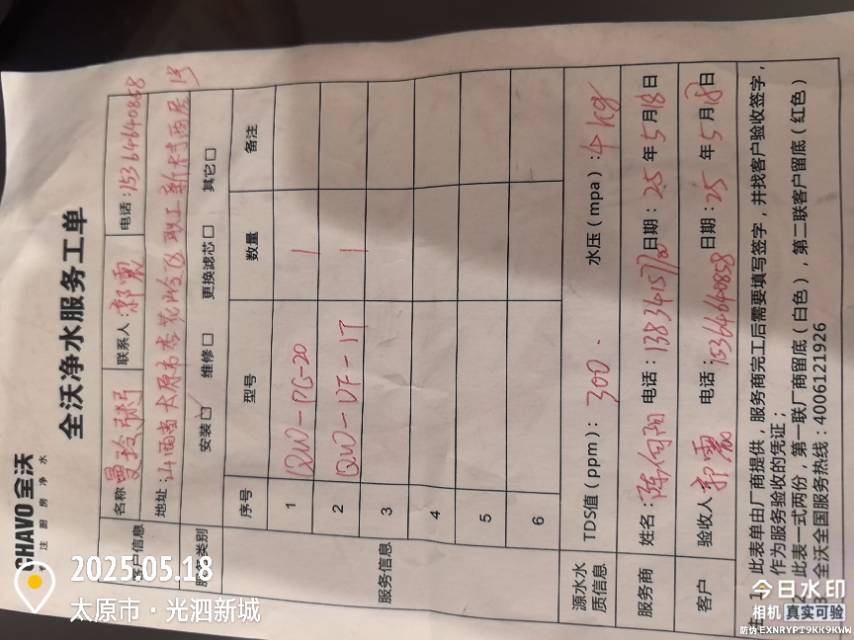 CHAVO 全沃
专注厨房净水
全沃净水服务工单
客户信息 名称 曼玲粥 联系人:郭震 电话:15364640858
地址:山西省太原市杏花岭区职工新村西层1号
服务类别 安装☑ 维修□ 更换滤芯□ 其它□
服务信息 序号 型号 数量 备注
1 QW-PG-20 1
2 QW-UF-1T 1
3
4
5
6
源水水质信息 TDS值(ppm):300. 水压(mpa):4kg
服务商 姓名:陈向阳 电话: 日期:25年5月18日
客户 验收人 郭震 电话:15364640858 日期:25年5月18日
注:1、此表单由厂商提供,服务商完工后需要填写签字,并找客户验收签字,
作为服务验收的凭证;
此表一式两份,第一联厂商留底(白色),第二联客户留底(红色)
全沃全国服务热线:4006121926
2025.05.18
太原市·光泗新城
今日水印
相机 真实可验
防伪 EXNRYPT9KK9KWN